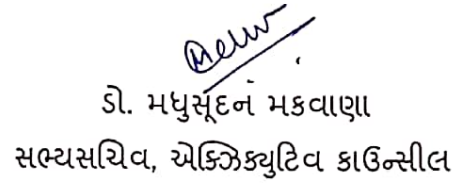 ડો. મધુસૂદન મકવાણા
સભ્યસચિવ, એક્ઝિક્યુટિવ કાઉન્સીલ